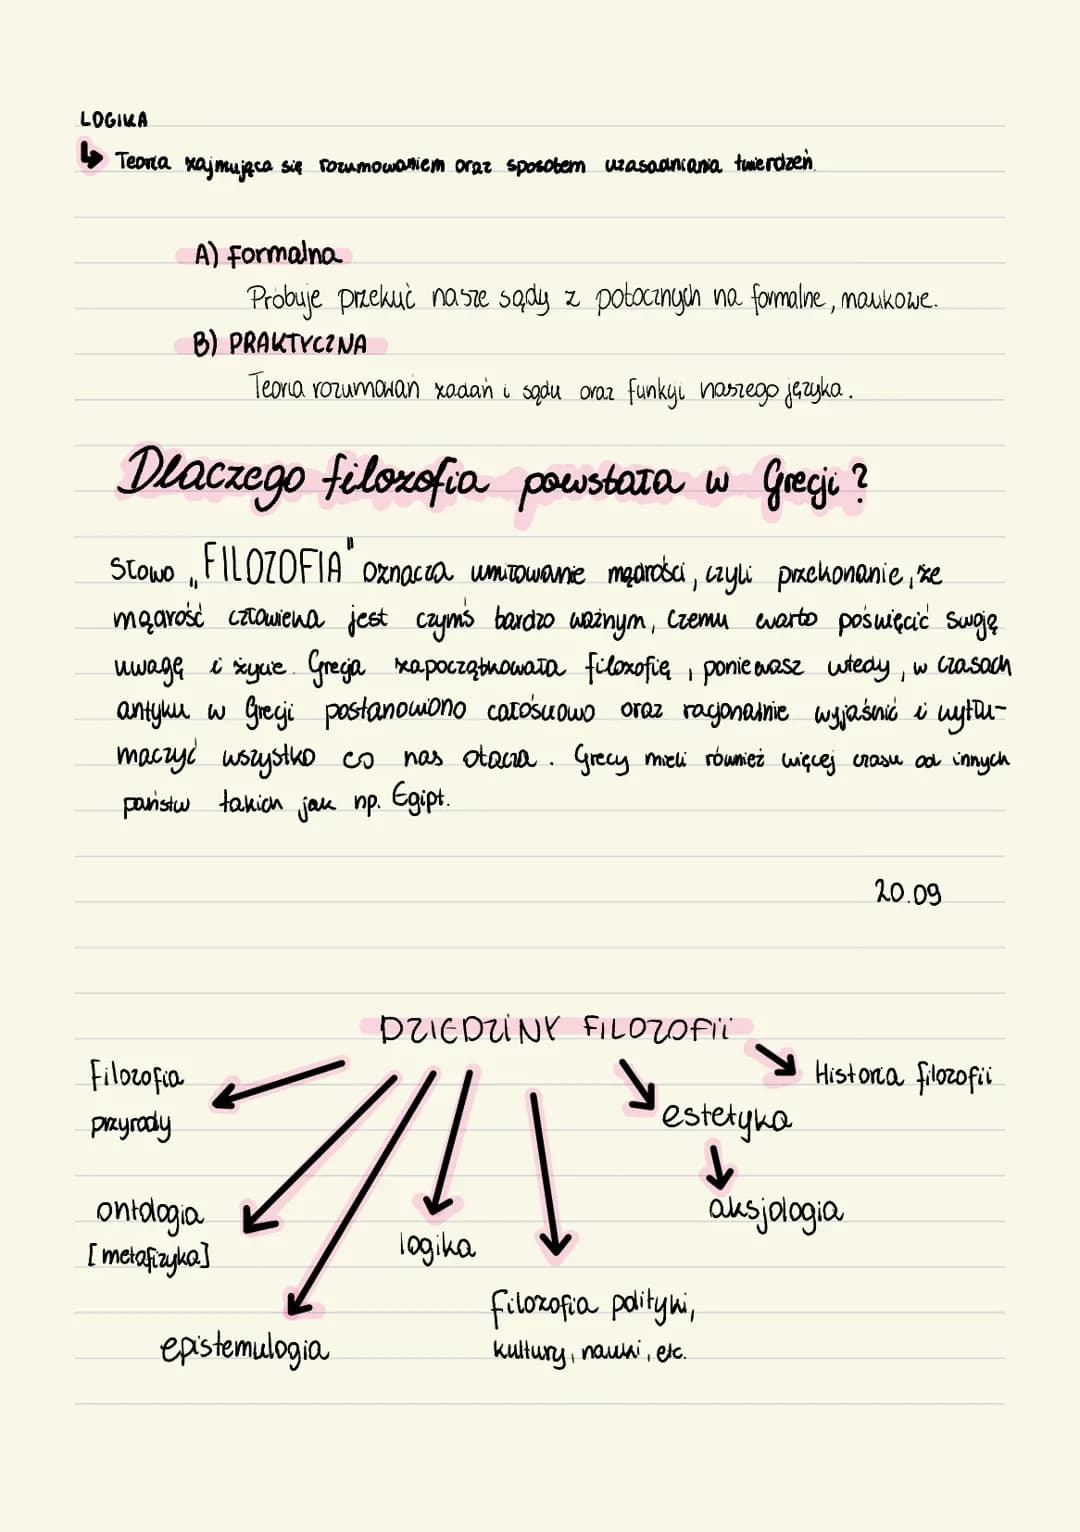 LOGIKA
↳ Teoria zajmująca się rozumowaniem oraz sposobem uzasadniania twierdzeń.
A) Formalna
Próbuje przekuć nasze sądy z potocznych na formalne, naukowe.
B) PRAKTYCZNA
Teoria rozumowań zadań i sądu oraz funkcji naszego języka.
Dlaczego filozofia powstała w Grecji?
Słowo „FILOZOFIA" oznacza umiłowanie mądrości, czyli przekonanie, że
mądrość człowieka jest czymś bardzo ważnym, czemu warto poświęcić swoją
uwagę i życie. Grecja zapoczątkowała filozofię, ponieważ wtedy, w czasach
antyku w Grecji postanowiono całościowo oraz racjonalnie wyjaśnić i wytłu-
maczyć wszystko co nas otacza. Grecy mieli również więcej czasu od innych
państw takich jak np. Egipt.
20.09
DZIEDZINY FILOZOFII
Filozofia
przyrody
Historia filozofii
estetyka
ontologia
[metafizyka]
aksjologia
logika
filozofia polityki,
kultury, nauki, etc.
epistemologia